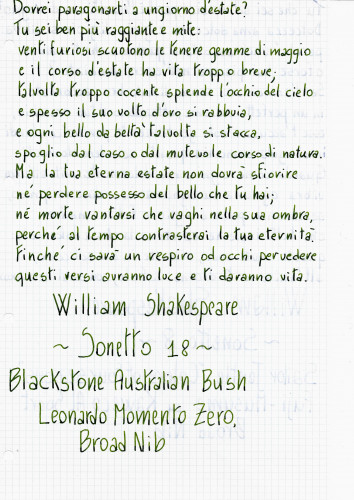 Dovrei paragonarti a ungiorno d'estate?
Tu sei ben più raggiante e mite:
venti furiosi scuotono le tenere gemme di maggio
e il corso d'estate ha vita troppo breve;
talvolta troppo cocente splende l'occhio del cielo
e spesso il suo volto d'oro si rabbuia,
e ogni bello da beltà talvolta si stacca,
spoglio dal caso o dal mutevole corso di natura.
Ma la tua eterna estate non dovrà sfiorire
né perdere possesso del bello che tu hai;
né morte vantarsi che vaghi nella sua ombra,
perché al tempo contrasterai la tua eternità.
Finché ci sarà un respiro od occhi per vedere
questi versi avranno luce e ti daranno vita.
William Shakespeare
~ Sonetto 18 ~
Blackstone Australian Bush
Leonardo Momento Zero,
Broad Nib